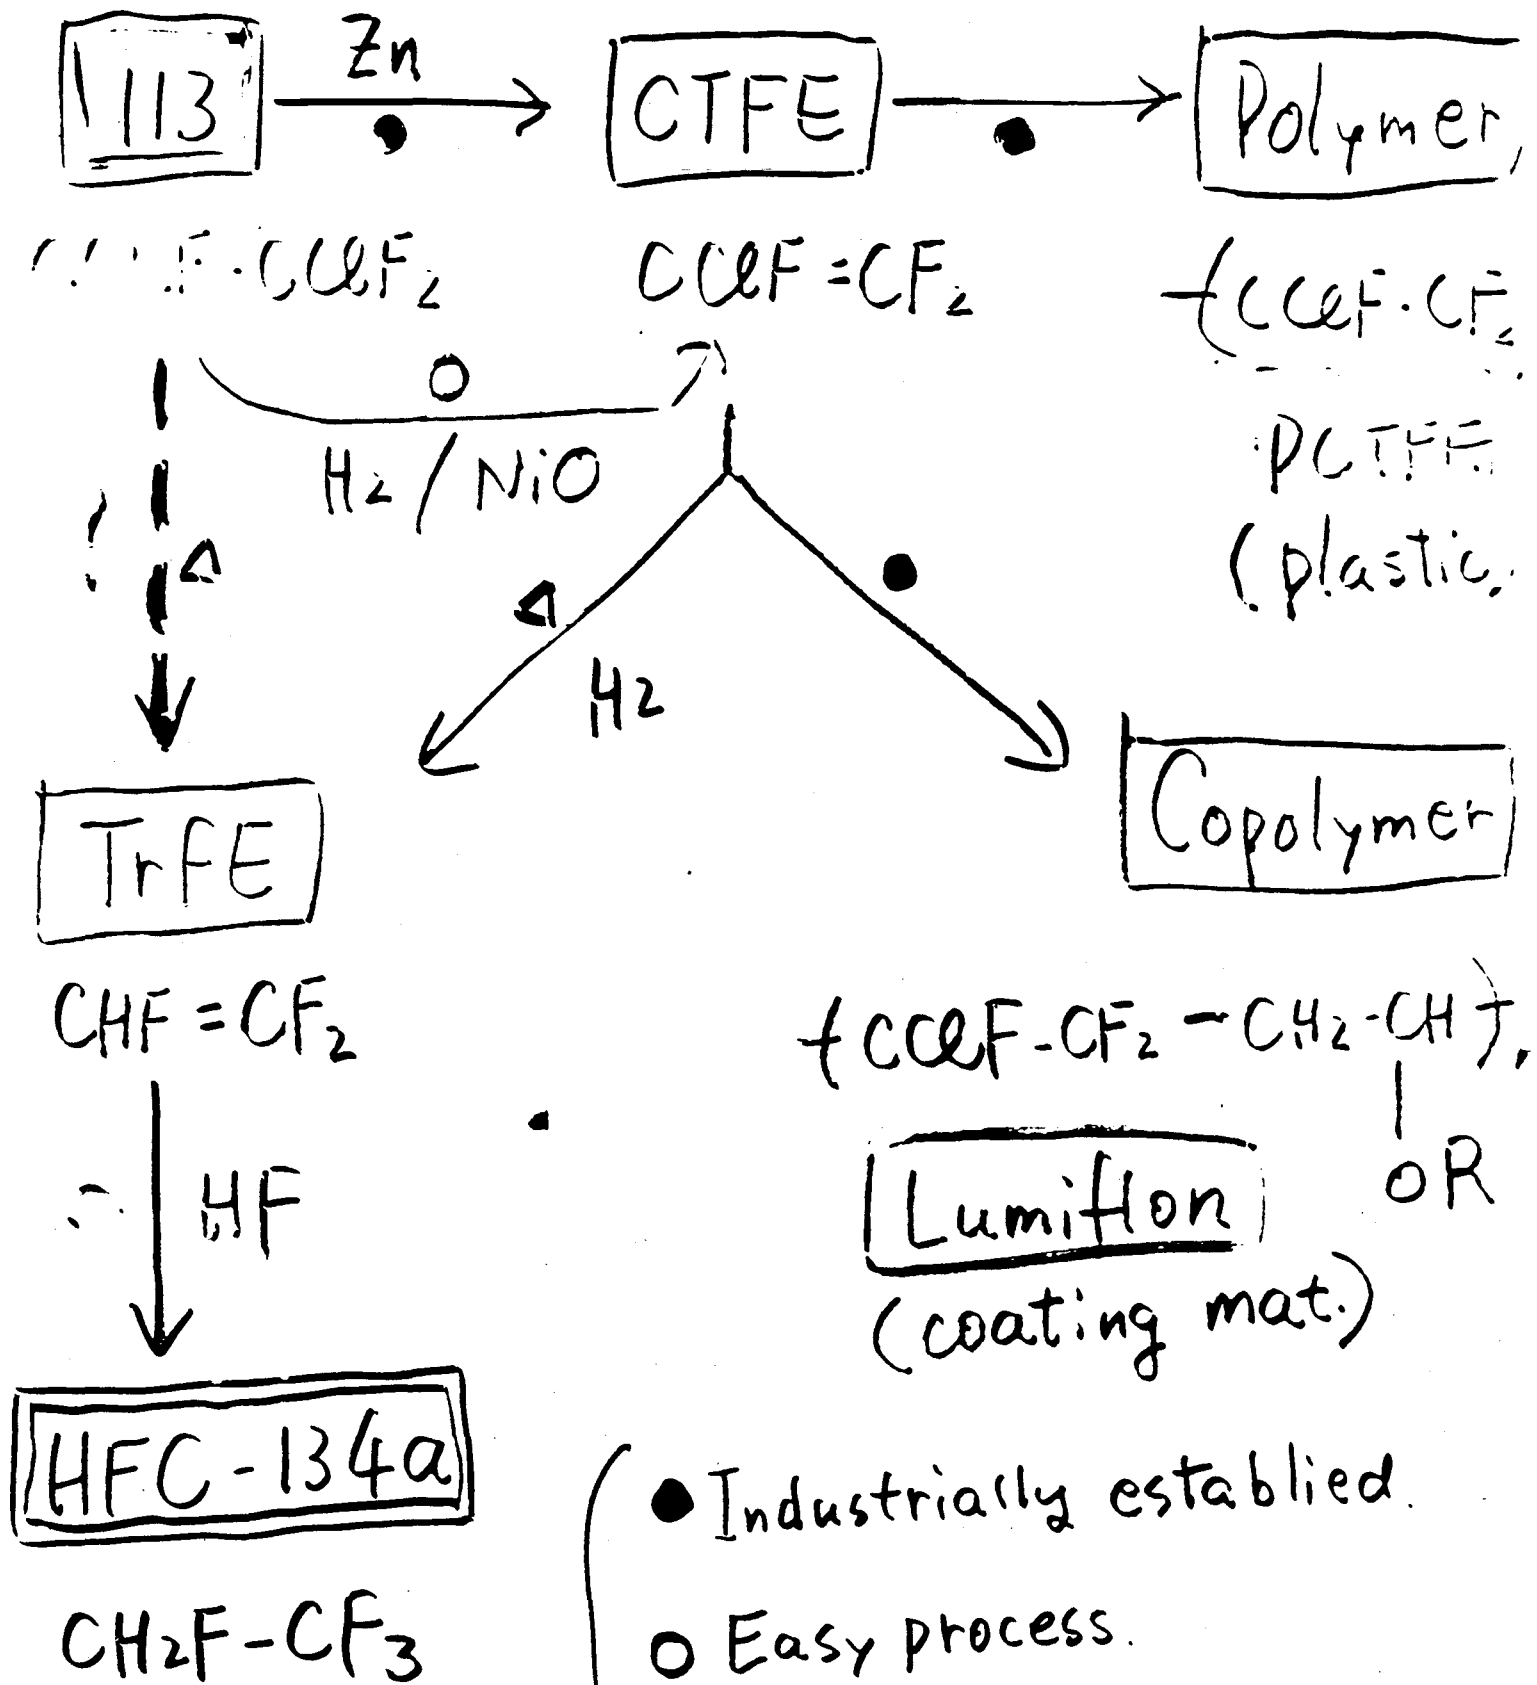 113 Zn CTFE Polymer
CClF2 CClF=CF2 CClF·CF2
H2/NiO
PCTFE
(plastic
H2
TrFE Copolymer
CHF=CF2 (CClF-CF2-CH2-CH)
OR
HF
Lumiflon
(coating mat.)
HFC-134a
CH2F-CF3
● Industrially establied.
○ Easy process.